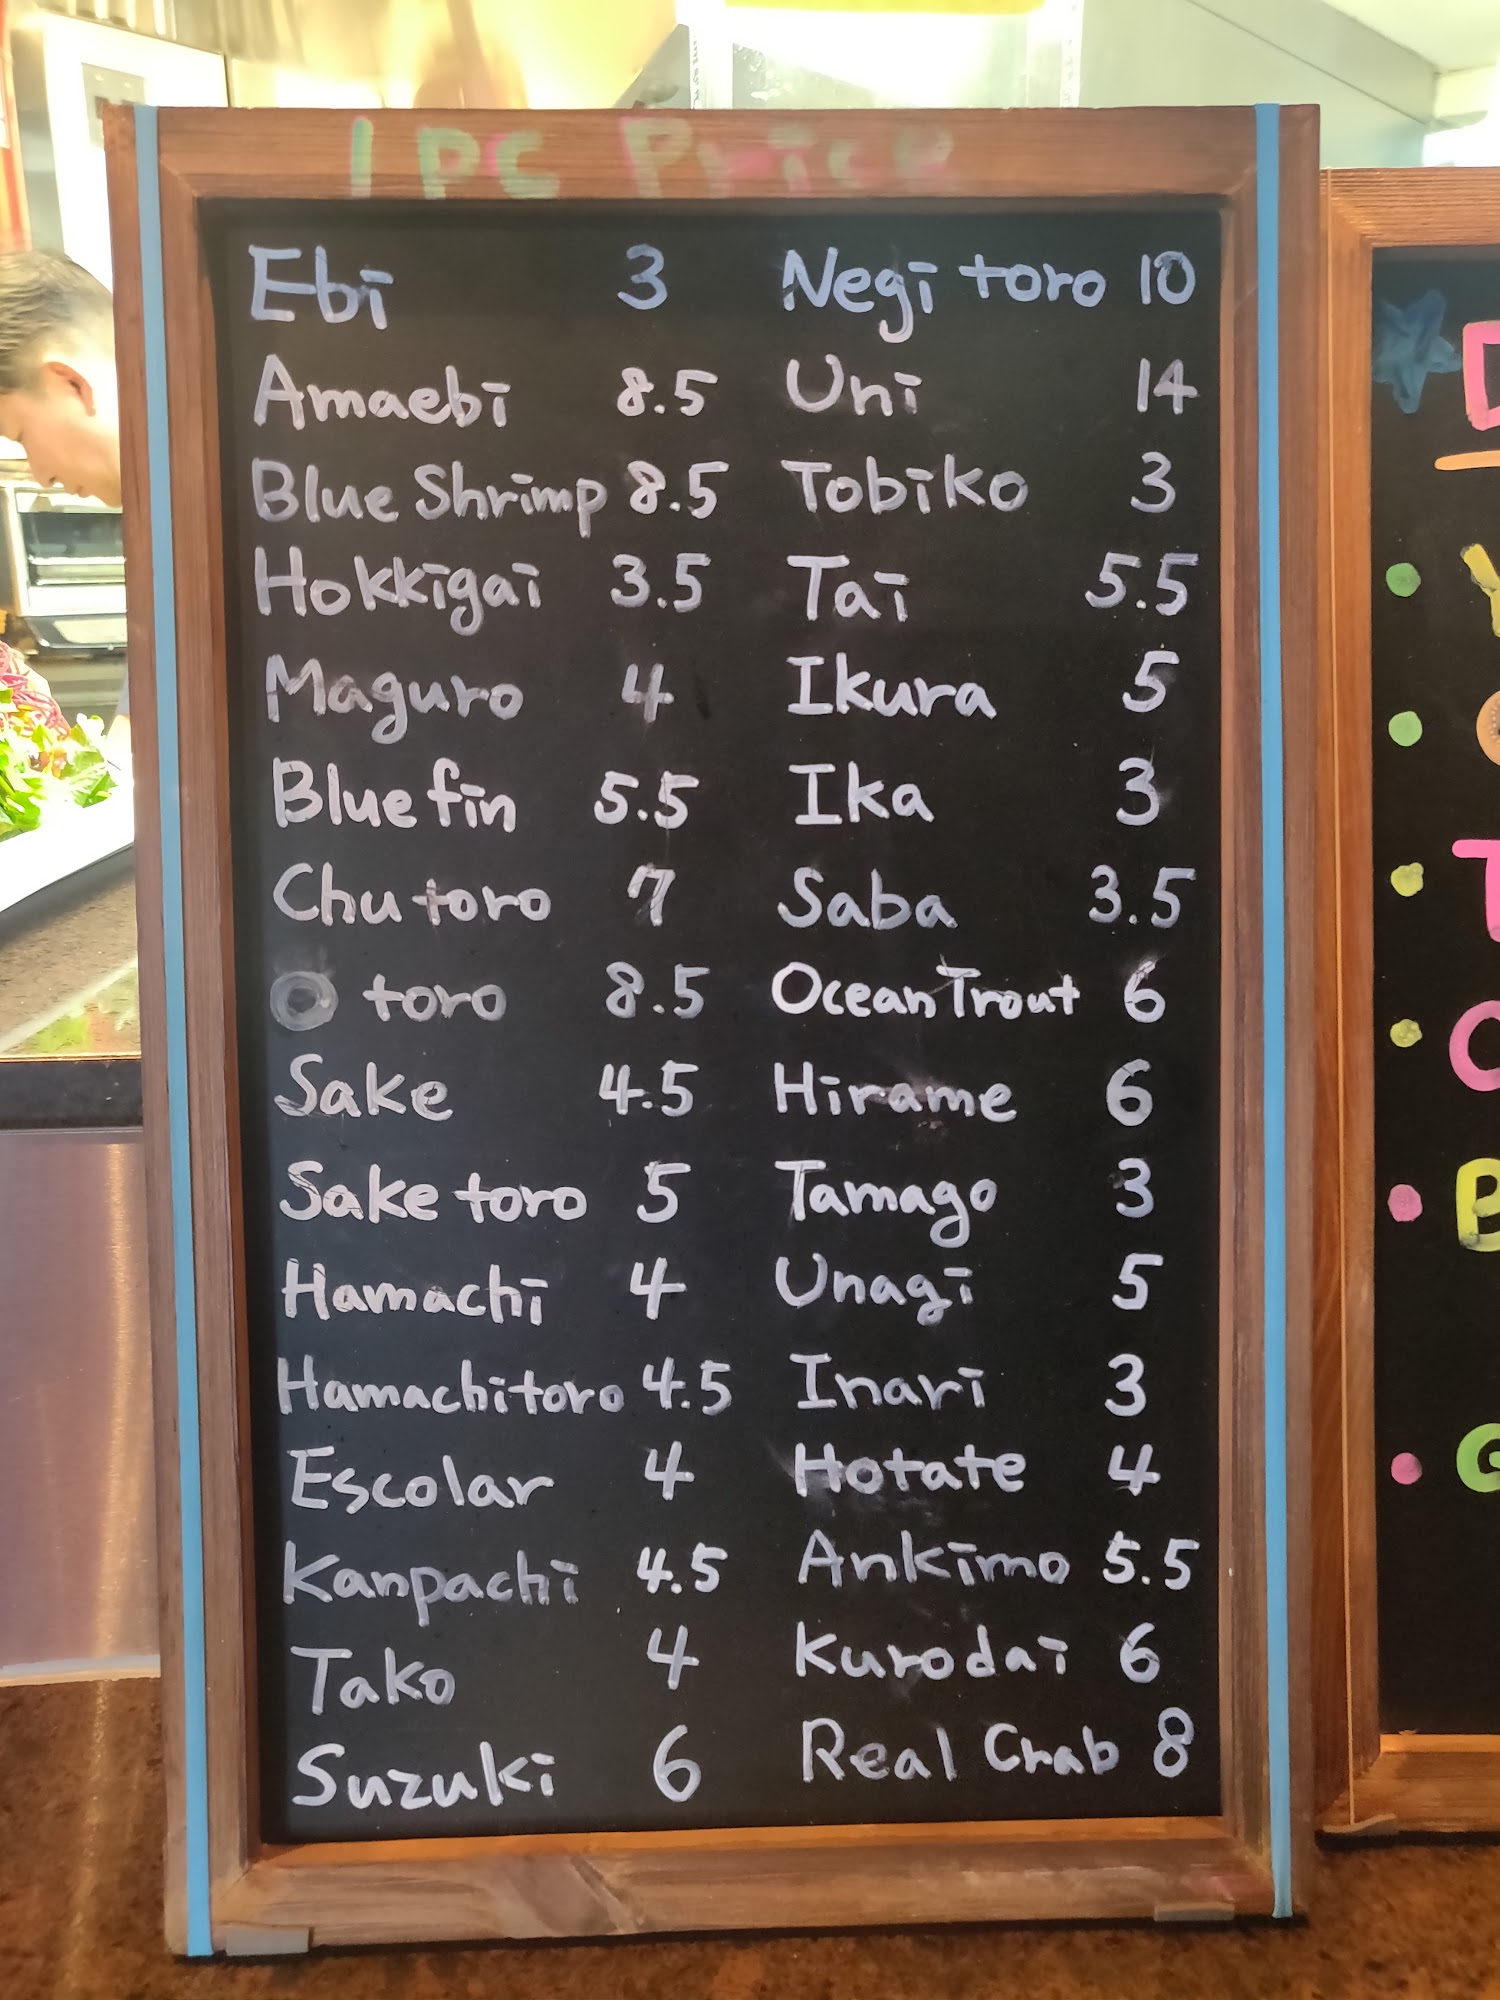 1 PC Price
Ebi 3
Amaebi 8.5
Blue Shrimp 8.5
Hokkigai 3.5
Maguro 4
Blue fin 5.5
Chu toro 7
O toro 8.5
Sake 4.5
Sake toro 5
Hamachi 4
Hamachi toro 4.5
Escolar 4
Kanpachi 4.5
Tako 4
Suzuki 6
Negi toro 10
Uni 14
Tobiko 3
Tai 5.5
Ikura 5
Ika 3
Saba 3.5
Ocean Trout 6
Hirame 6
Tamago 3
Unagi 5
Inari 3
Hotate 4
Ankimo 5.5
Kurodai 6
Real Crab 8